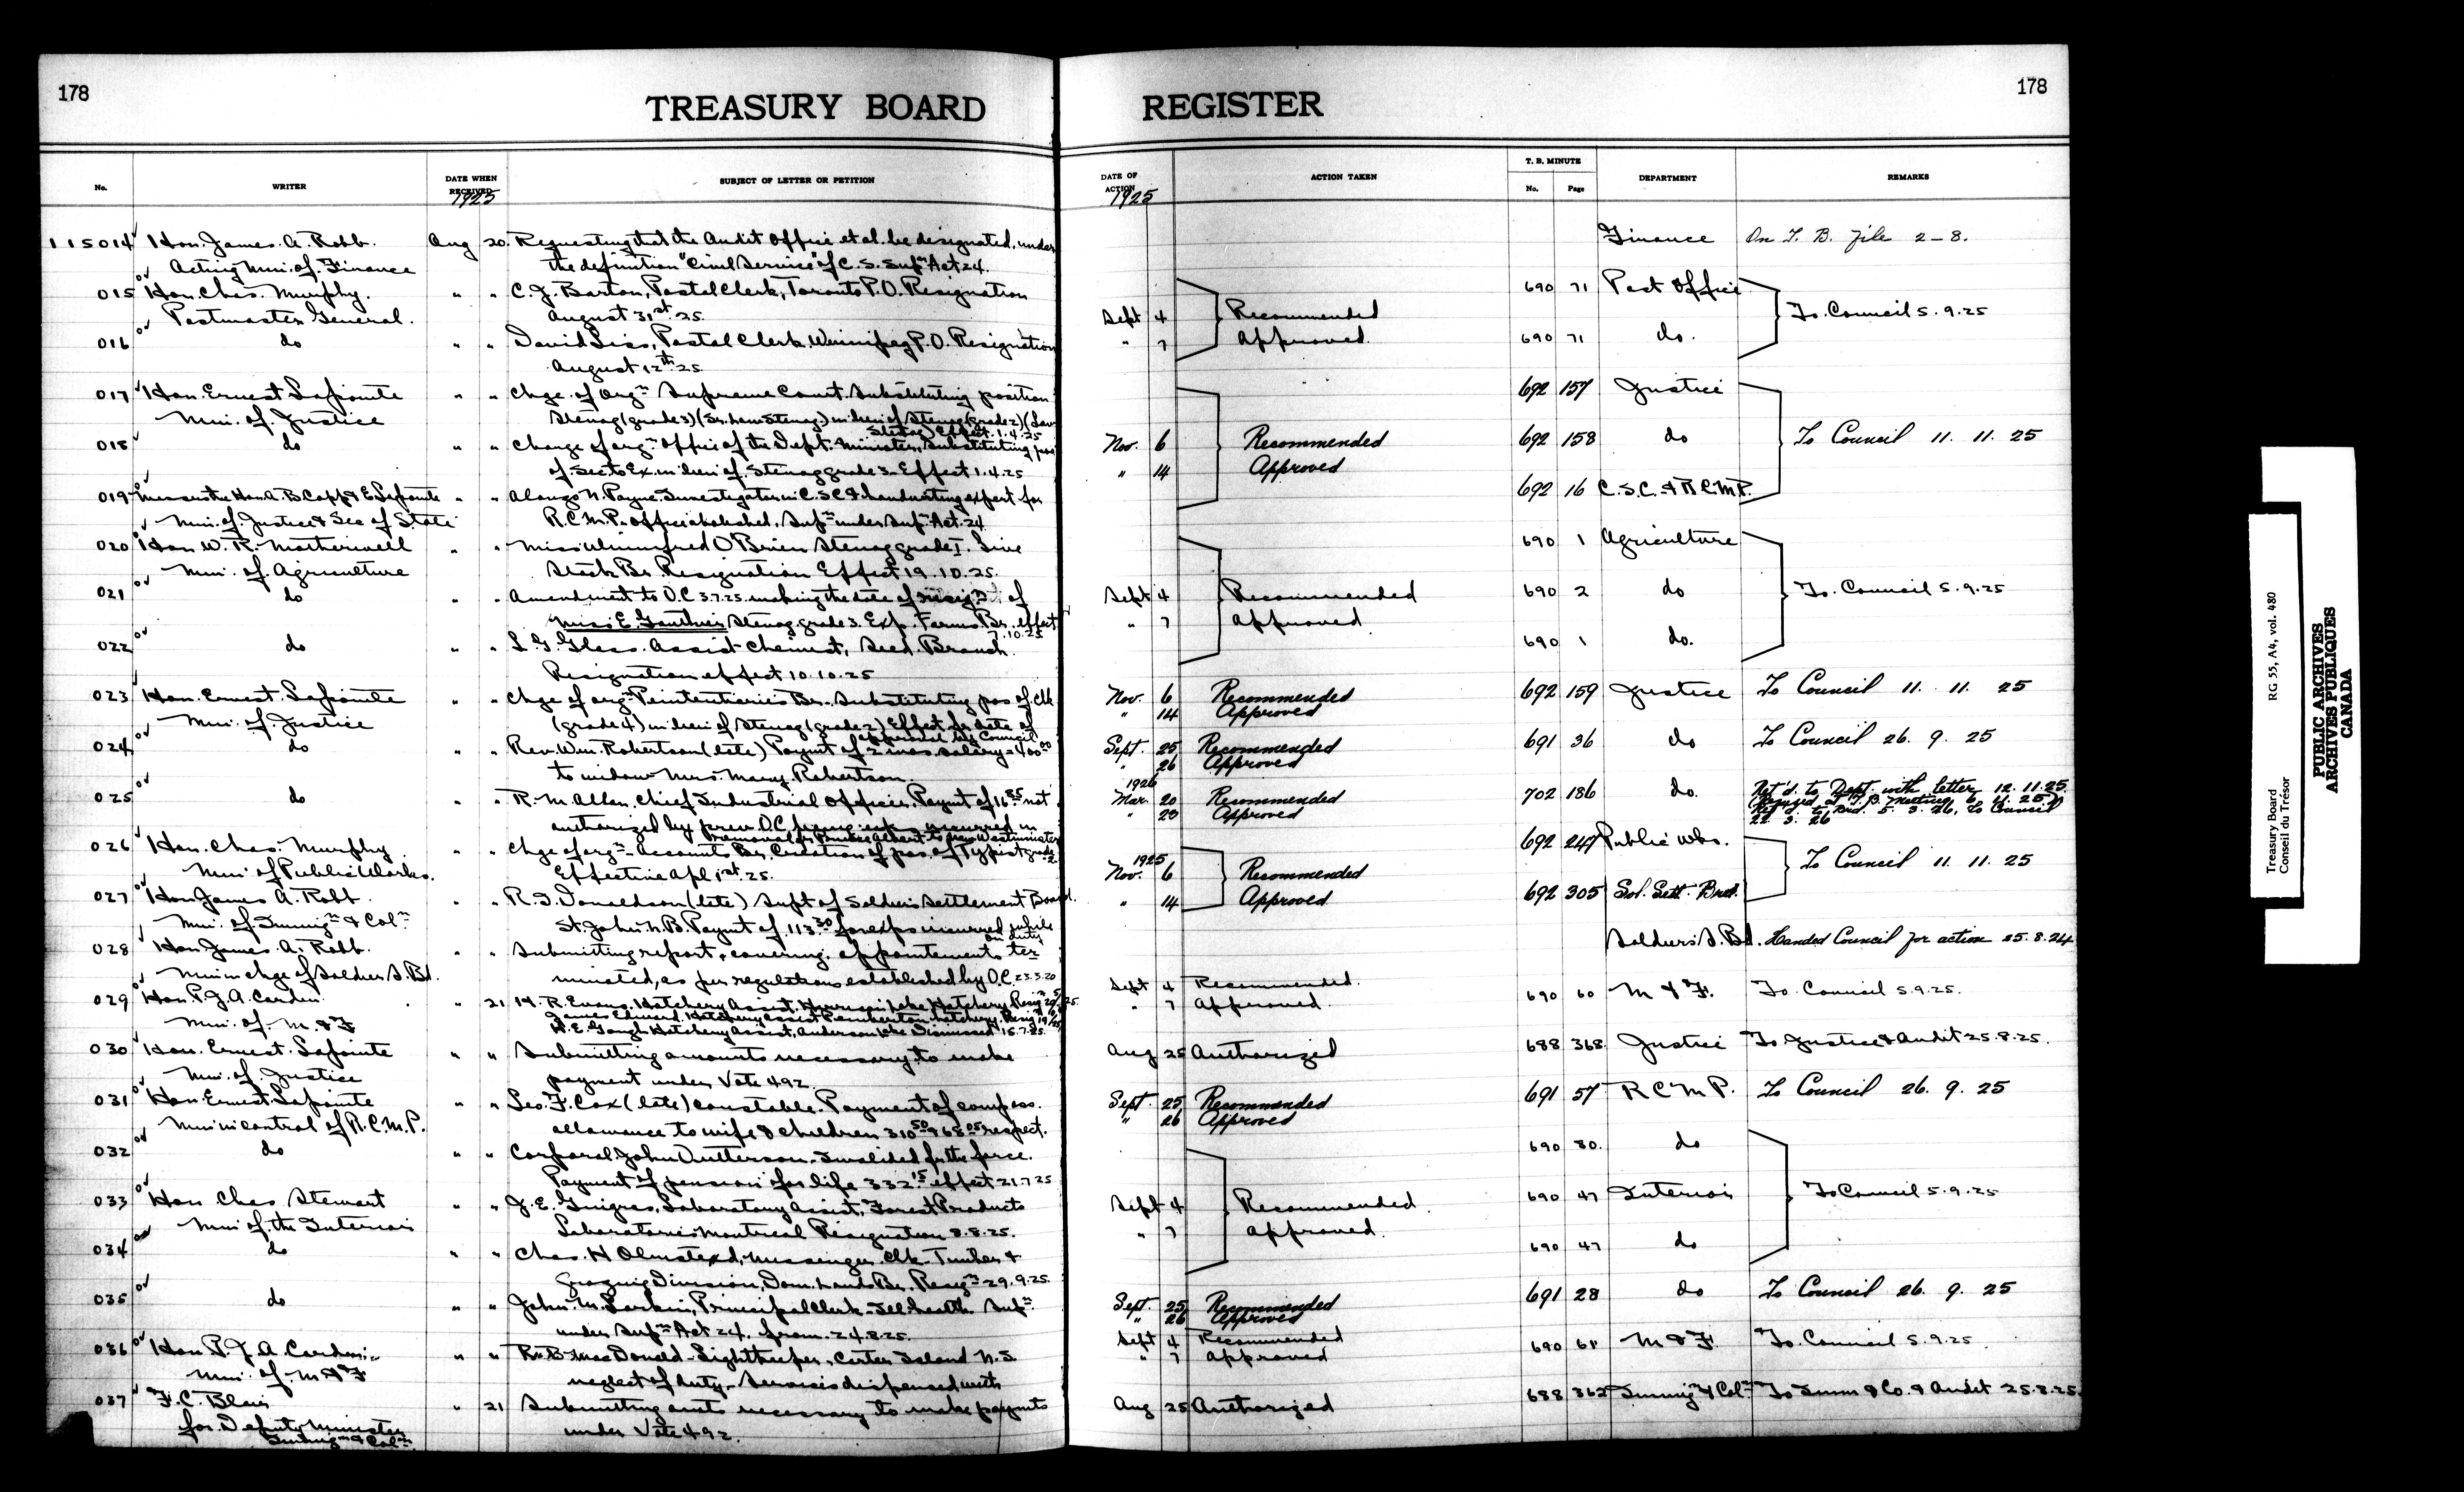 178
TREASURY BOARD REGISTER
178
No.
WRITER
DATE WHEN RECEIVED
1925
SUBJECT OF LETTER OR PETITION
DATE OF ACTION
1925
ACTION TAKEN
T. B. MINUTE
No.
Page
DEPARTMENT
REMARKS
115014 Hon. James A. Robb. Aug 20. Requesting that the Audit Office et al. be designated, under Finance On T. B. File 2-8.
Acting Min. of Finance the definition "Civil Service" of C. S. Supn Act 24.
015 Hon. Chas. Murphy. " " C. J. Barton, Postal Clerk, Toronto P.O. Resignation 690 71 Post Office
Postmaster General. August 31st 25. Sept 4 Recommended To Council 5.9.25
016 do " " David Liss, Postal Clerk, Winnipeg P.O. Resignation " 7 Approved 690 71 do.
August 12th 25.
017 Hon. Ernest Lapointe " " Chge of Orgn Supreme Court. Substituting position 692 157 Justice
Min. of Justice Stenog (grade 3) (Sr. Law Stenog.) in lieu of Stenog (grade 2) (Law
Stenog) Effect. 1.4.25
018 do " " Change of orgn Office of the Dept. Minister, Substituting pos Nov. 6 Recommended 692 158 do To Council 11. 11. 25
of Sec to Ex. in lieu of Stenog grade 3. Effect 1.4.25 " 14 Approved
019 Messrs the Hon. A. B. Copp & E. Lapointe " " Alonzo N. Payne Investigator in C.S.C & handwriting expert for 692 16 C.S.C. & R.C.M.P.
Min. of Justice & Sec of State R.C.M.P. office abolished. Supn under Supn Act. 24
020 Hon W. R. Motherwell " " Miss Winnifred O'Brien Stenog grade I. Live 690 1 Agriculture
Min. of Agriculture Stock Br. Resignation Effect 19.10.25.
021 do " " Amendment to O.C 3.7.25. making the date of resign of Sept 4 Recommended 690 2 do To Council 5.9.25
Miss E. Gauthier Stenog grade 3. Exp. Farms Br. effect " 7 Approved
7.10.25
022 do " " L. G. Glass. Assist Chemist, Seed Branch. 690 1 do.
Resignation effect 10.10.25
023 Hon. Ernest Lapointe " " Chge of orgn Penitentiaries Br. Substituting pos of Clk Nov. 6 Recommended 692 159 Justice To Council 11. 11. 25
Min. of Justice (grade 4) in lieu of Stenog (grade 2) Effect fr date of " 14 Approved
approval by Council
024 do " " Rev. Wm. Robertson (late) Paymt of 2 mos. salary = 400 00 Sept. 25 Recommended 691 36 do To Council 26. 9. 25
to widow Mrs. Mary Robertson. " 26 Approved
1926
025 do " " R. M. Allan. Chief Industrial Officer. Paymt of 16 85 not Mar. 20 Recommended 702 186 do. Ret'd. to Dept. with letter 12.11.25
authorized by prev. O.C. incurred in " 28 Approved
removal fr. Prince Albert to New Westminster
026 Hon. Chas. Murphy " " Chge of orgn - Accounts Br. Creation of pos. of Typist grade 2. 692 247 Public Wks.
Min of Public Works. Effective Apl 1st 25. 1925 Nov. 6 Recommended To Council 11. 11. 25
027 Hon James A. Robb. " " R. I. Donaldson (late) Supt of Soldiers Settlement Board. " 14 Approved 692 305 Sol. Sett. Brd.
Min. of Immign & Coln St. John. N.B. Paymt of 113 30 for exps incurred while
on duty
028 Hon. James A. Robb. " " Submitting report, covering, appointements ter Soldiers S. Bd. Handed Council for action 25.8.24
Min in chge of Soldier S. Bd. minated, as per regulations established by O.C. 23.3.20
029 Hon. P. J. A. Cardin. " 21 H. R. Evans, Hatchery Assist. Lake Hatchery. Sept 4 Recommended. 690 60 M & F. To Council 5.9.25.
Min. of M. & F James Edward. Hatchery assist Pemberton Hatchery. " 7 Approved.
H. E. Gough Hatchery Assist, Anderson Lake Dismissed 15.7.25.
030 Hon. Ernest Lapointe " " Submitting amounts necessary to make Aug 25 Authorized 688 368. Justice To Justice & Audit 25.8.25.
Min. of Justice payment under Vote 492.
031 Hon. Ernest Lapointe " " Geo. F. Cox (late) constable. Payment of compass. Sept. 25 Recommended 691 57 R C M P. To Council 26. 9. 25
Min in control of R.C.M.P. allowance to wife & children 310 50 & 68 05 respect. " 26 Approved
032 do " " Corporal John Dutterson, Invalided fr the force. 690 80. do
Payment of pension for life 332 15 effect 21.7.25
033 Hon Chas Stewart " " J. E. Guigras, Laboratory assist, Forest Products Sept 4 Recommended. 690 47 Interior To Council 5.9.25
Min of the Interior Laboratories Montreal Resignation 8.8.25. " 7 Approved.
034 do " " Chas. H Olmstead, Messenger. Clk. Timber & 690 47 do
Grazing Division, Dom. Lands Br. Resign 29.9.25.
035 do " " John M. Larkin, Principal Clerk - Ill health Supn Sept. 25 Recommended 691 28 do To Council 26. 9. 25
under Supn Act 24. from 24.8.25. " 26 Approved
036 Hon P. J. A. Cardin. " " R. B. MacDonald - Lightkeeper, Carter Island N.S. Sept 4 Recommended 690 61 M & F. To Council 5.9.25.
Min. of M & F neglect of duty - Services dispensed with " 7 Approved
037 F. C. Blair " 21 Submitting amts necessary to make paymts Aug 25 Authorized 688 362 Immign & Coln To Imm & Co. & Audit 25.8.25.
for Deputy Minister under Vote 492.
Immign & Coln
Treasury Board
Conseil du Trésor
RG 55, A4, vol. 480
PUBLIC ARCHIVES
ARCHIVES PUBLIQUES
CANADA